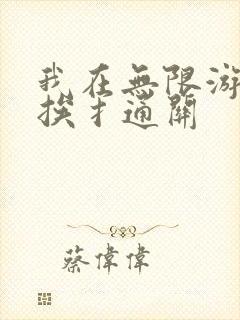 我在無限游
挨才通關
蔡偉偉